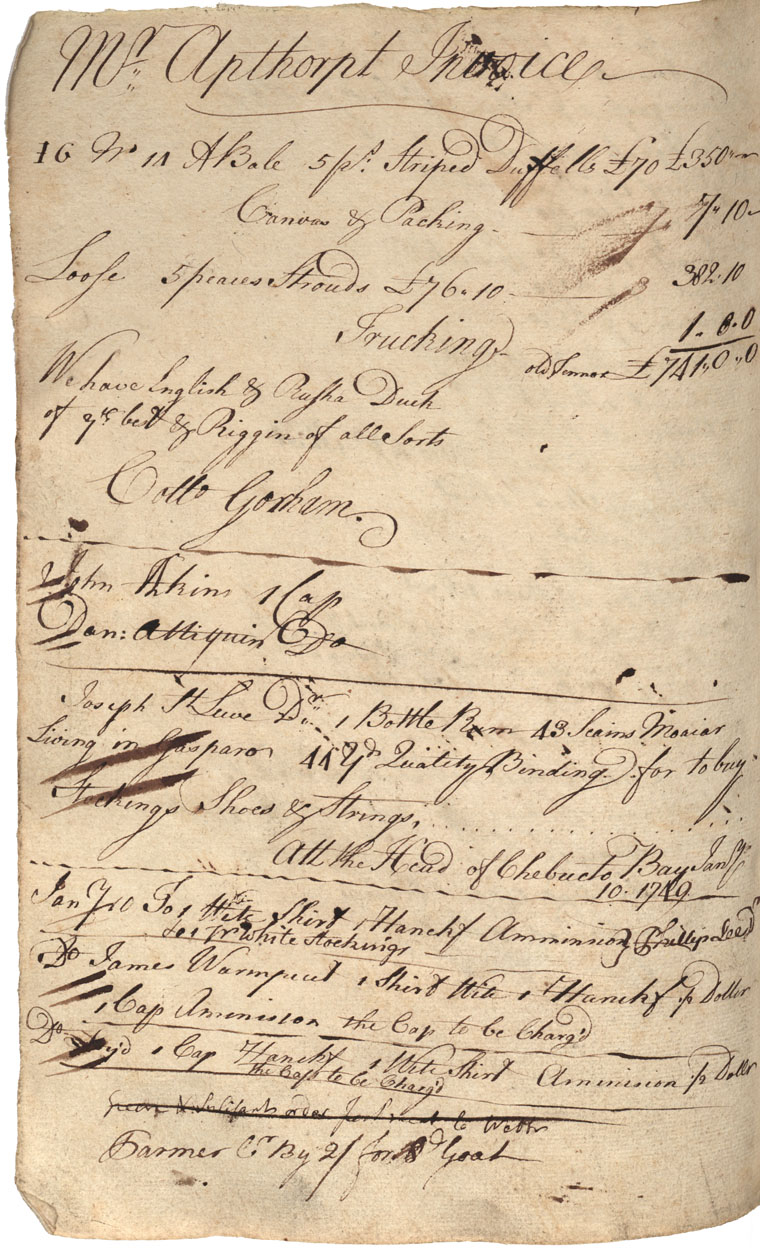 Mr Apthorpt Invoice
16 No 11 A Bale 5 ps. Striped Duffells £70 £350"
Canvas & Packing - 7"10
Loose 5 peaces Strouds £76"10 382"10
Trucking 1"0"0
old Tennor £741"0"0
We have English & Rusha Duck
of ye best & Riggin of all Sorts
Cotto Gorham
John Atkins 1 Cap
Dan: Attiquin Do
Joseph St Luve Dr 1 Bottle Rum 43 Scains Moaiar
Living in Gasparo 44 Yd Quality Binding for to buy
Stockings Shoes & Strings,
Att the Head of Chebucto Bay Jany
10. 1749
Jany 10 To 1 Wite Shirt 1 Hanckf Amminsion Phillip Leed
1 Pr White Stockings
Do James Warmpeut 1 Shirt Wite 1 Hanckf p Doller
1 Cap Aminision the Cap to be Charg'd
Do 1 Cap Hanckf 1 Wite Shirt Aminision p Dollr
the Cap to be Charg'd
Farmer Cr By 2/ for Goat